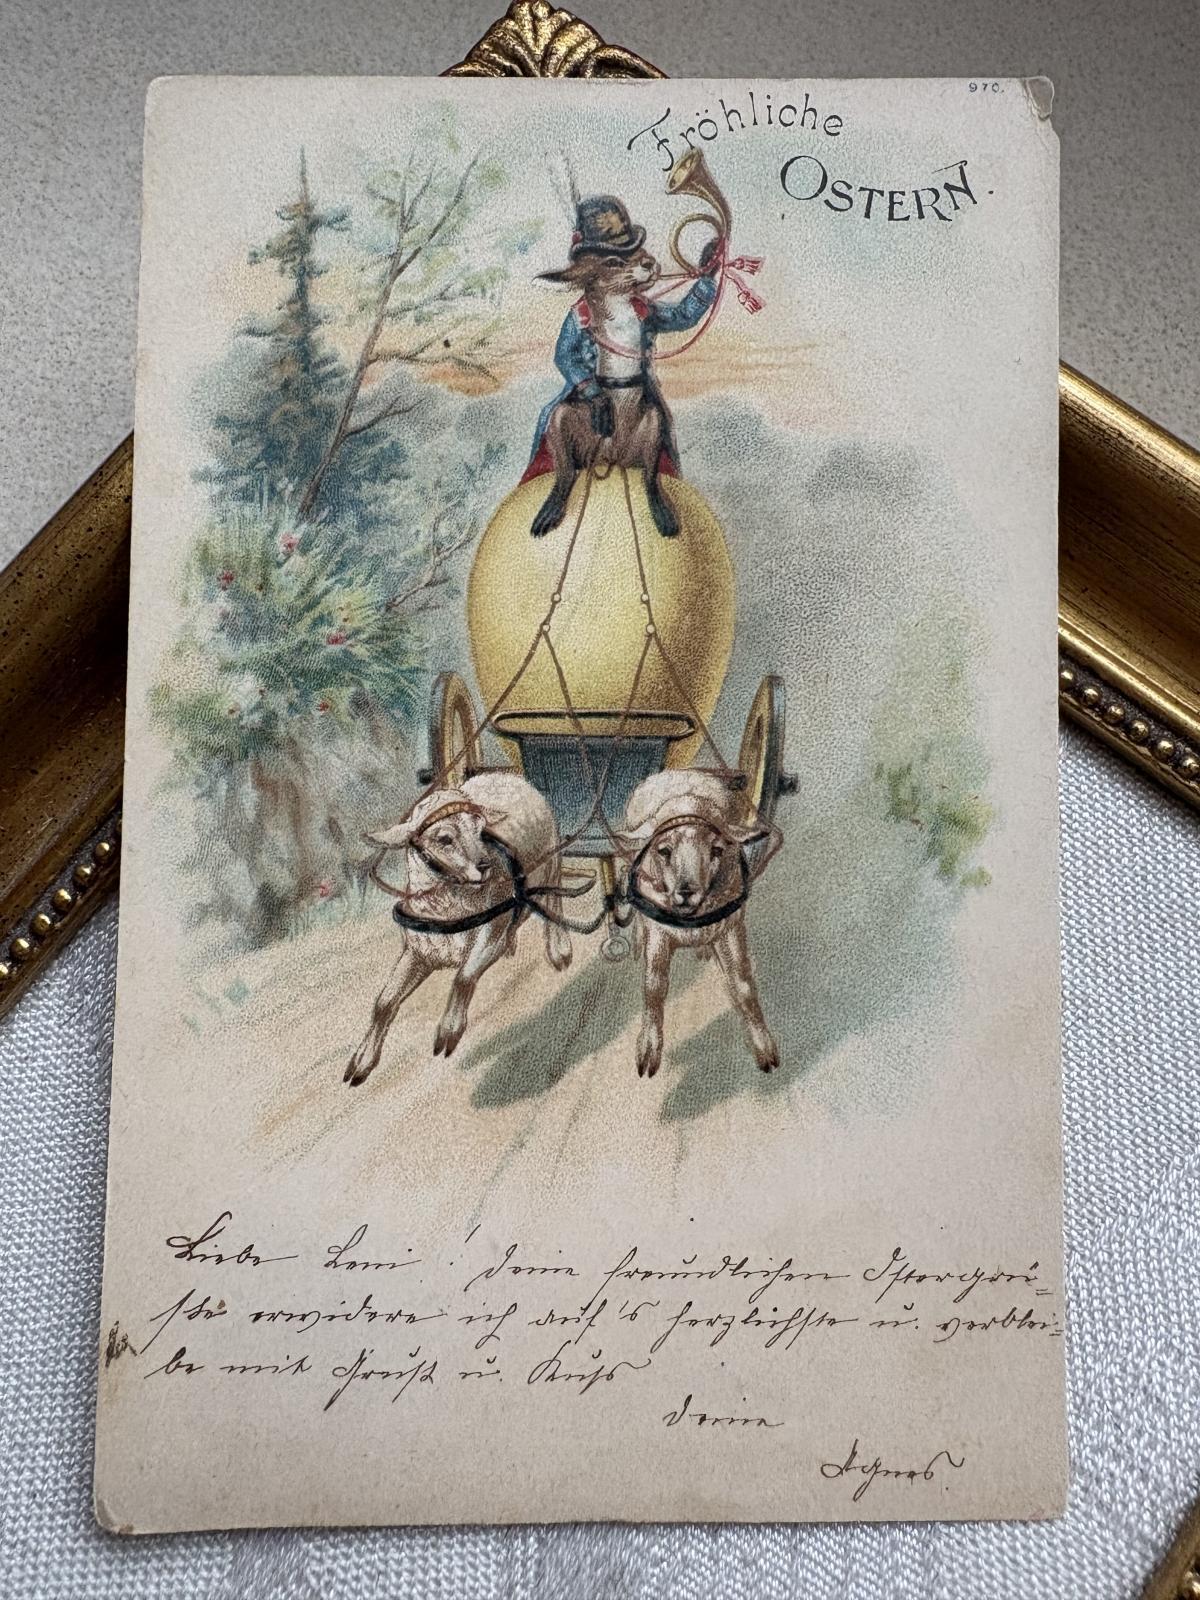 970.
Fröhliche
OSTERN.
Liebe Leni! Deine freundlichen Ostergrü=
ße erwidere ich auf's herzlichste u. verblei=
be mit Gruß u. Kuss
Deine
Agnes.